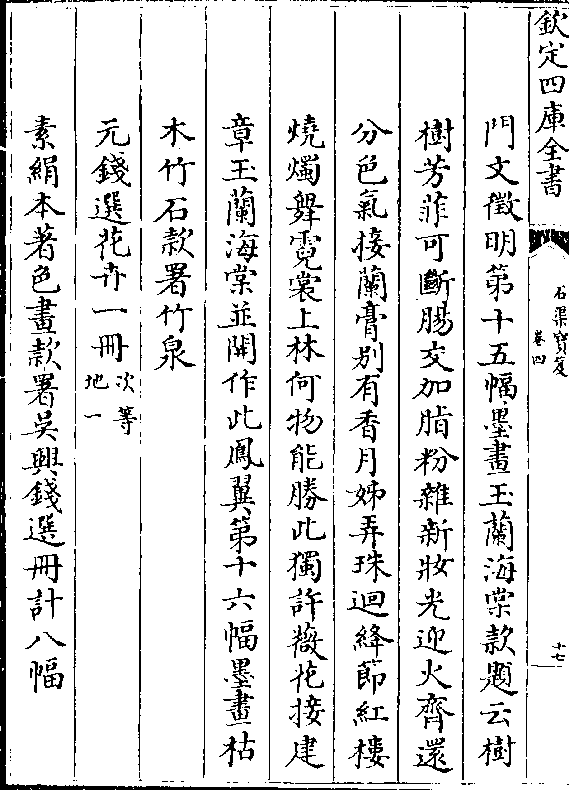 欽定四庫全書
石渠寶笈
卷四
十七
門文徵明第十五幅墨畫玉蘭海棠款題云樹
樹芳菲可斷腸交加脂粉雜新妝光迎火齊還
分色氣接蘭膏別有香月姊弄珠迴絳節紅樓
燒燭舞霓裳上林何物能勝此獨許薇花接建
章玉蘭海棠並開作此鳳翼第十六幅墨畫枯
木竹石款署竹泉
元錢選花卉一冊次等
地一
素絹本著色畫款署吳興錢選冊計八幅